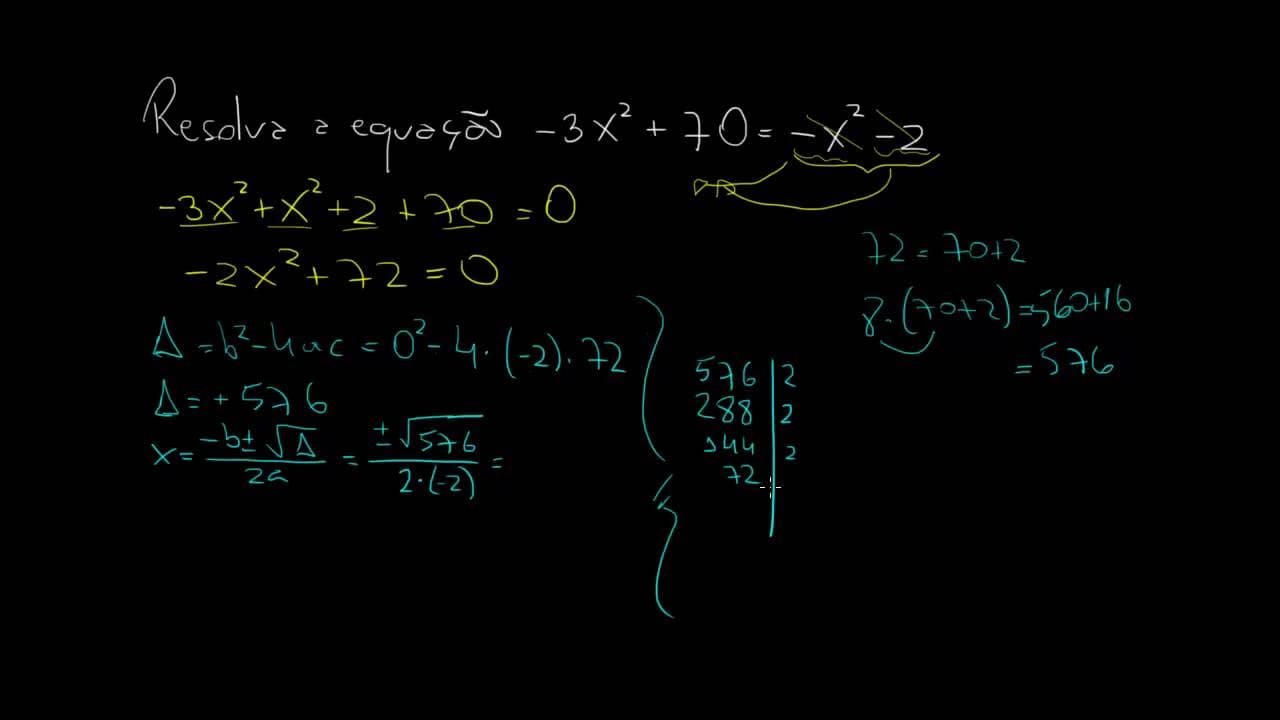 Resolva a equação -3x² + 70 = -x² - 2
-3x² + x² + 2 + 70 = 0
-2x² + 72 = 0
Δ = b² - 4ac = 0² - 4 · (-2) · 72
Δ = + 576
x = (-b ± √Δ) / 2a = ± √576 / 2·(-2) =
576 | 2
288 | 2
144 | 2
72 |
72 = 70+2
8 · (70+2) = 560+16
= 576